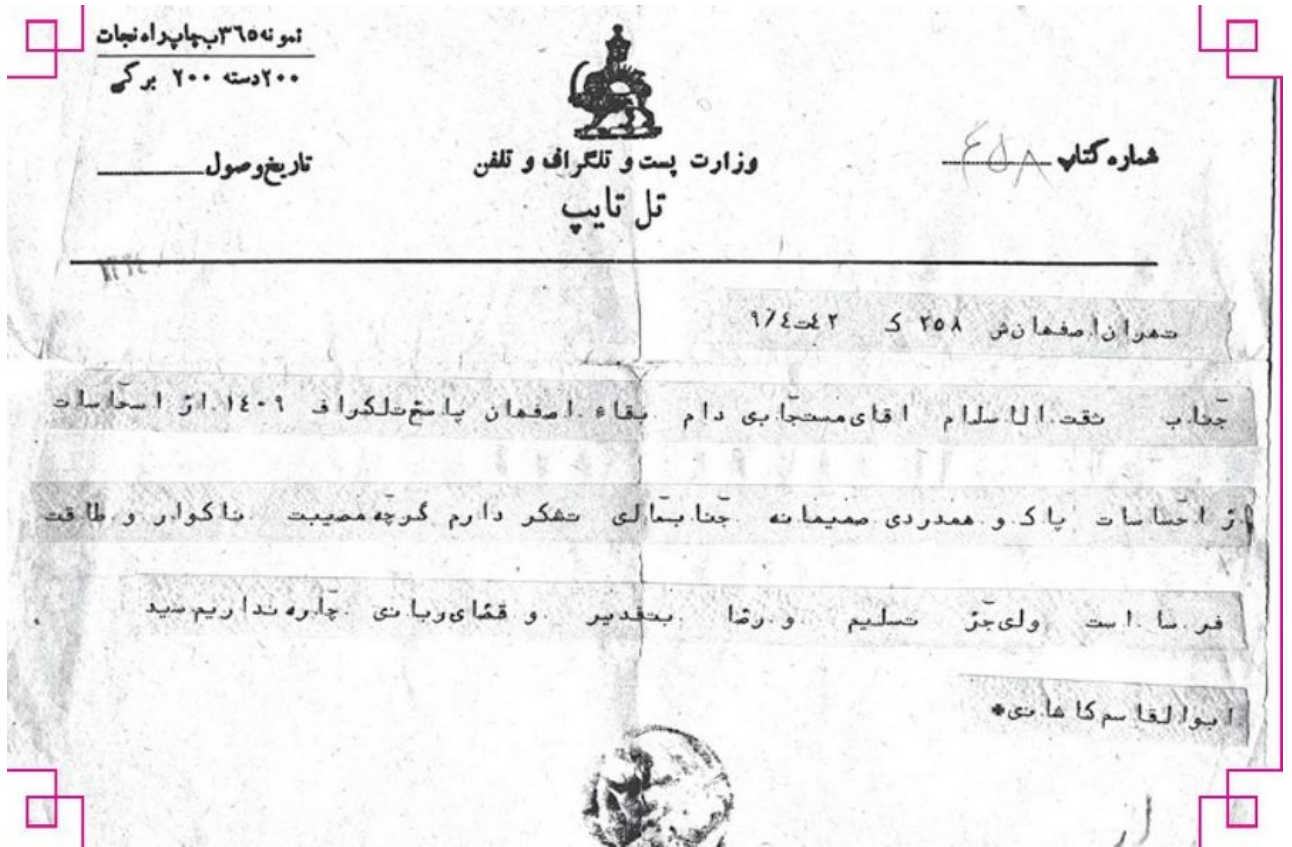 نمونه ۳۶۵ ب چاپ راه نجات
۲۰۰ دسته ۲۰۰ برگی
شماره کتاب ۴۵۸
وزارت پست و تلگراف و تلفن
تاریخ وصول
تل تایپ
تهران اصفهان ش ۲۵۸ ک ۴۲ ت ۹/۴
جناب ثقت الاسلام اقای مستجابی دام بقاء اصفهان پاسخ تلگراف ۱۴۰۹ از اسحاسات
از احساسات پاک و همدردی صمیمانه جنابعالی تشکر دارم گرچه مصیبت ناگوار و طاقت
فرسا است ولی جز تسلیم و رضا بتقدیر و قضای ربانی چاره نداریم سید
ابوالقاسم کاشانی*